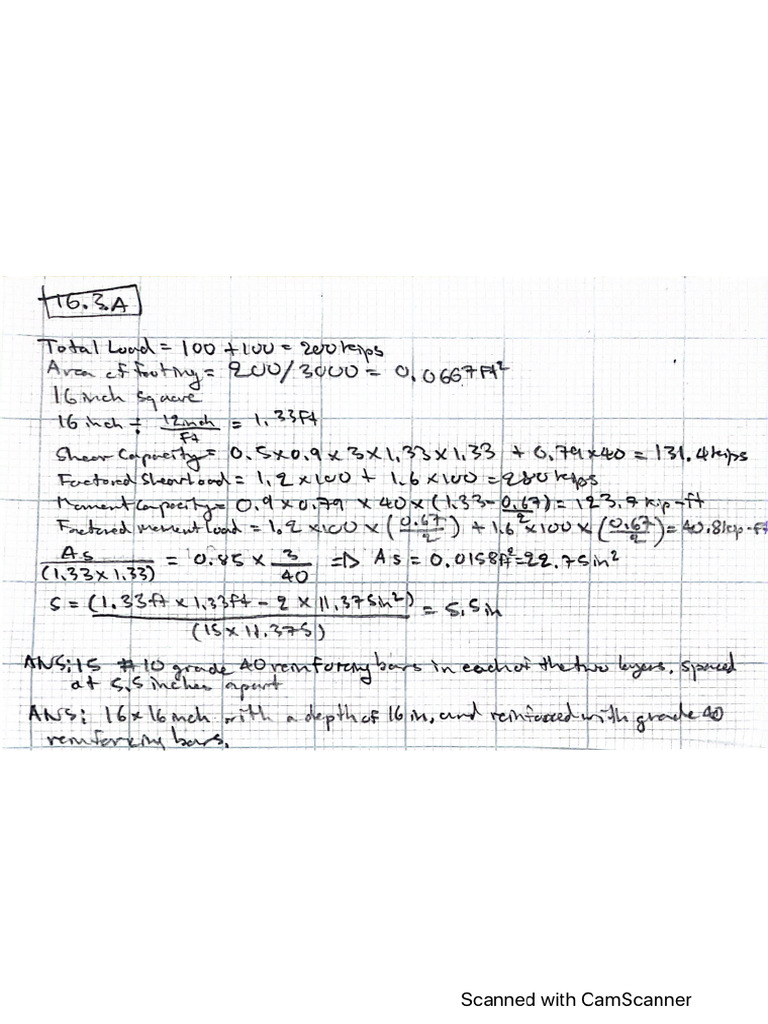 16.3.A
Total Load = 100 + 100 = 200 kips
Area of footing = 200/3000 = 0.0667 ft²
16 inch square
16 inch ÷ 12 inch/ft = 1.33 ft
Shear Capacity = 0.5 x 0.9 x 3 x 1.33 x 1.33 + 0.79 x 40 = 131.4 kips
Factored Shear Load = 1.2 x 100 + 1.6 x 100 = 280 kips
Moment Capacity = 0.9 x 0.79 x 40 x (1.33 - 0.67/2) = 123.7 kip-ft
Factored moment load = 1.2 x 100 x (0.67/2) + 1.6 x 100 x (0.67/2) = 40.8 kip-ft
As/(1.33 x 1.33) = 0.85 x 3/40 => As = 0.0158 ft² = 22.75 in²
S = (1.33 ft x 1.33 ft - 2 x 11.375 in²)/(15 x 11.375) = 5.5 in
ANS: 15 #10 grade 40 reinforcing bars in each of the two layers, spaced
at 5.5 inches apart
ANS: 16 x 16 inch with a depth of 16 in, and reinforced with grade 40
reinforcing bars.
Scanned with CamScanner